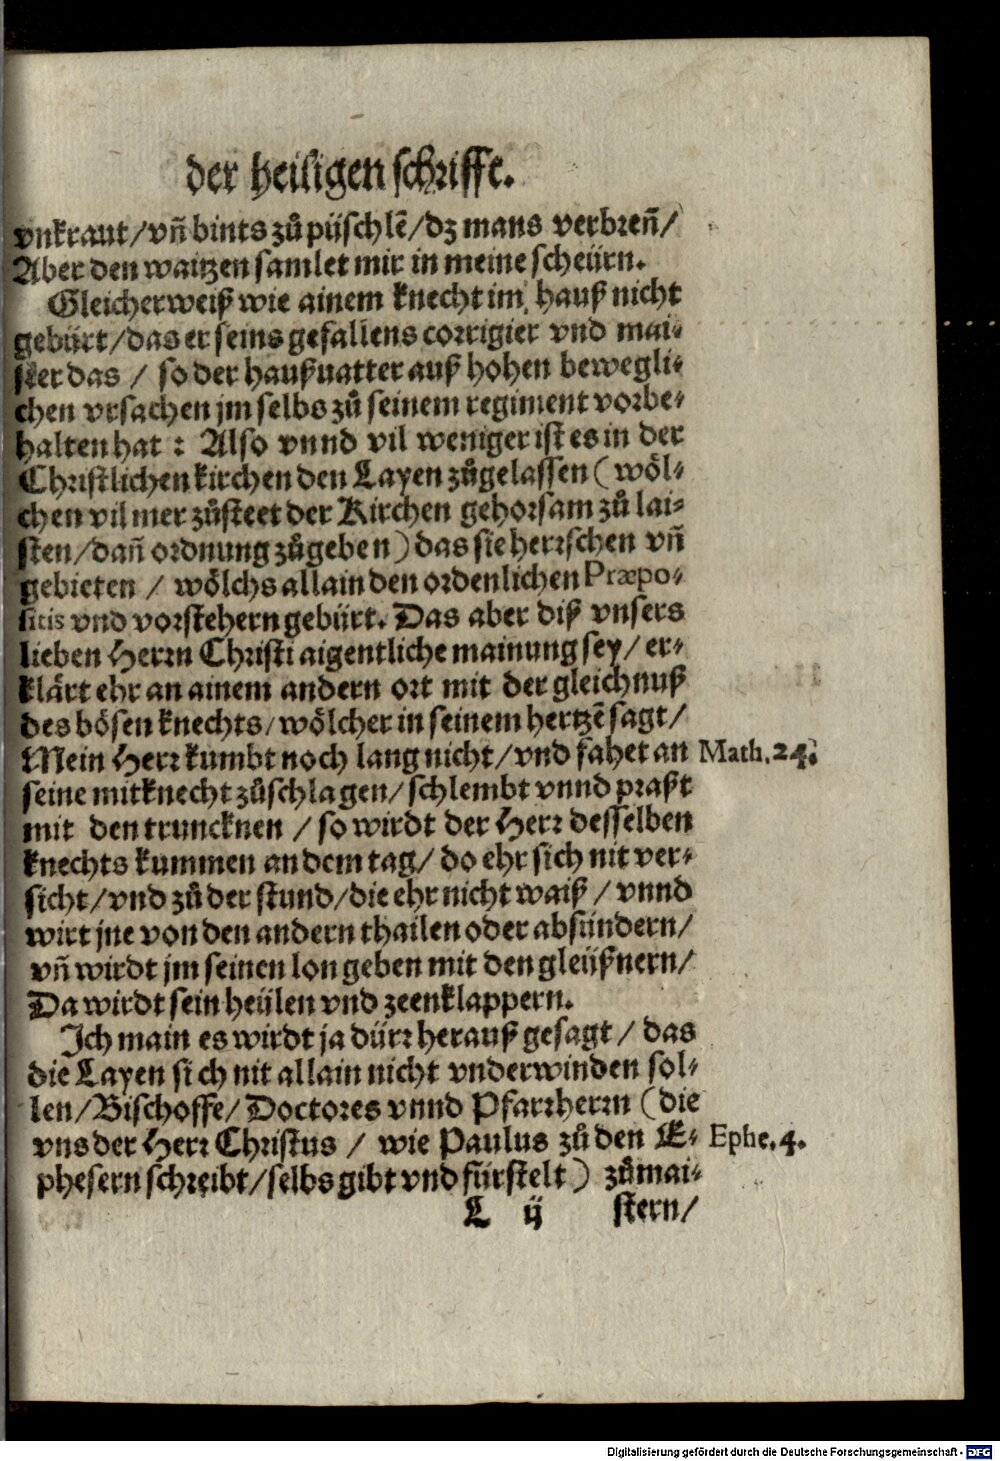 der heiligen schrifft.
vnkraut/vñ bints zů püschlẽ/dz mans verbreñ/
Aber den waitzen samlet mir in meine scheürn.
Gleicherweiß wie ainem knecht im hauß nicht
gebürt/das er seins gefallens corrigier vnd mai⸗
ster das / so der haußuatter auß hohen bewegli⸗
chen vrsachen jm selbs zů seinem regiment vorbe⸗
halten hat : Also vnnd vil weniger ist es in der
Christlichen kirchen den Layen zůgelassen (wöl⸗
chen vil mer zůsteet der Kirchen gehorsam zů lai⸗
sten/dañ ordnung zůgeben) das sie herrschen vñ
gebieten / wölchs allain den ordenlichen Præpo⸗
sitis vnd vorstehern gebürt. Das aber diß vnsers
lieben Herrn Christi aigentliche mainung sey/ er⸗
klärt ehr an ainem andern ort mit der gleichnuß
des bösen knechts/wölcher in seinem hertzẽ sagt/
Mein Herr kumbt noch lang nicht/vnd fahet an Math.24.
seine mitknecht zůschlagen/schlembt vnnd praßt
mit den truncknen / so wirdt der Herr desselben
knechts kummen an dem tag/ do ehr sich nit ver⸗
sicht/vnd zů der stund/die ehr nicht waiß / vnnd
wirt jne von den andern thailen oder absündern/
vñ wirdt jm seinen lon geben mit den gleüßnern/
Da wirdt sein heülen vnd zeenklappern.
Ich main es wirdt ja dürr herauß gesagt / das
die Layen sich nit allain nicht vnderwinden sol⸗
len/Bischoffe/Doctores vnnd Pfarrherrn (die
vns der Herr Christus / wie Paulus zů den E⸗ Ephe.4.
phesern schreibt/selbs gibt vnd fürstelt) zůmai⸗
L ij stern/
Digitalisierung gefördert durch die Deutsche Forschungsgemeinschaft - DFG